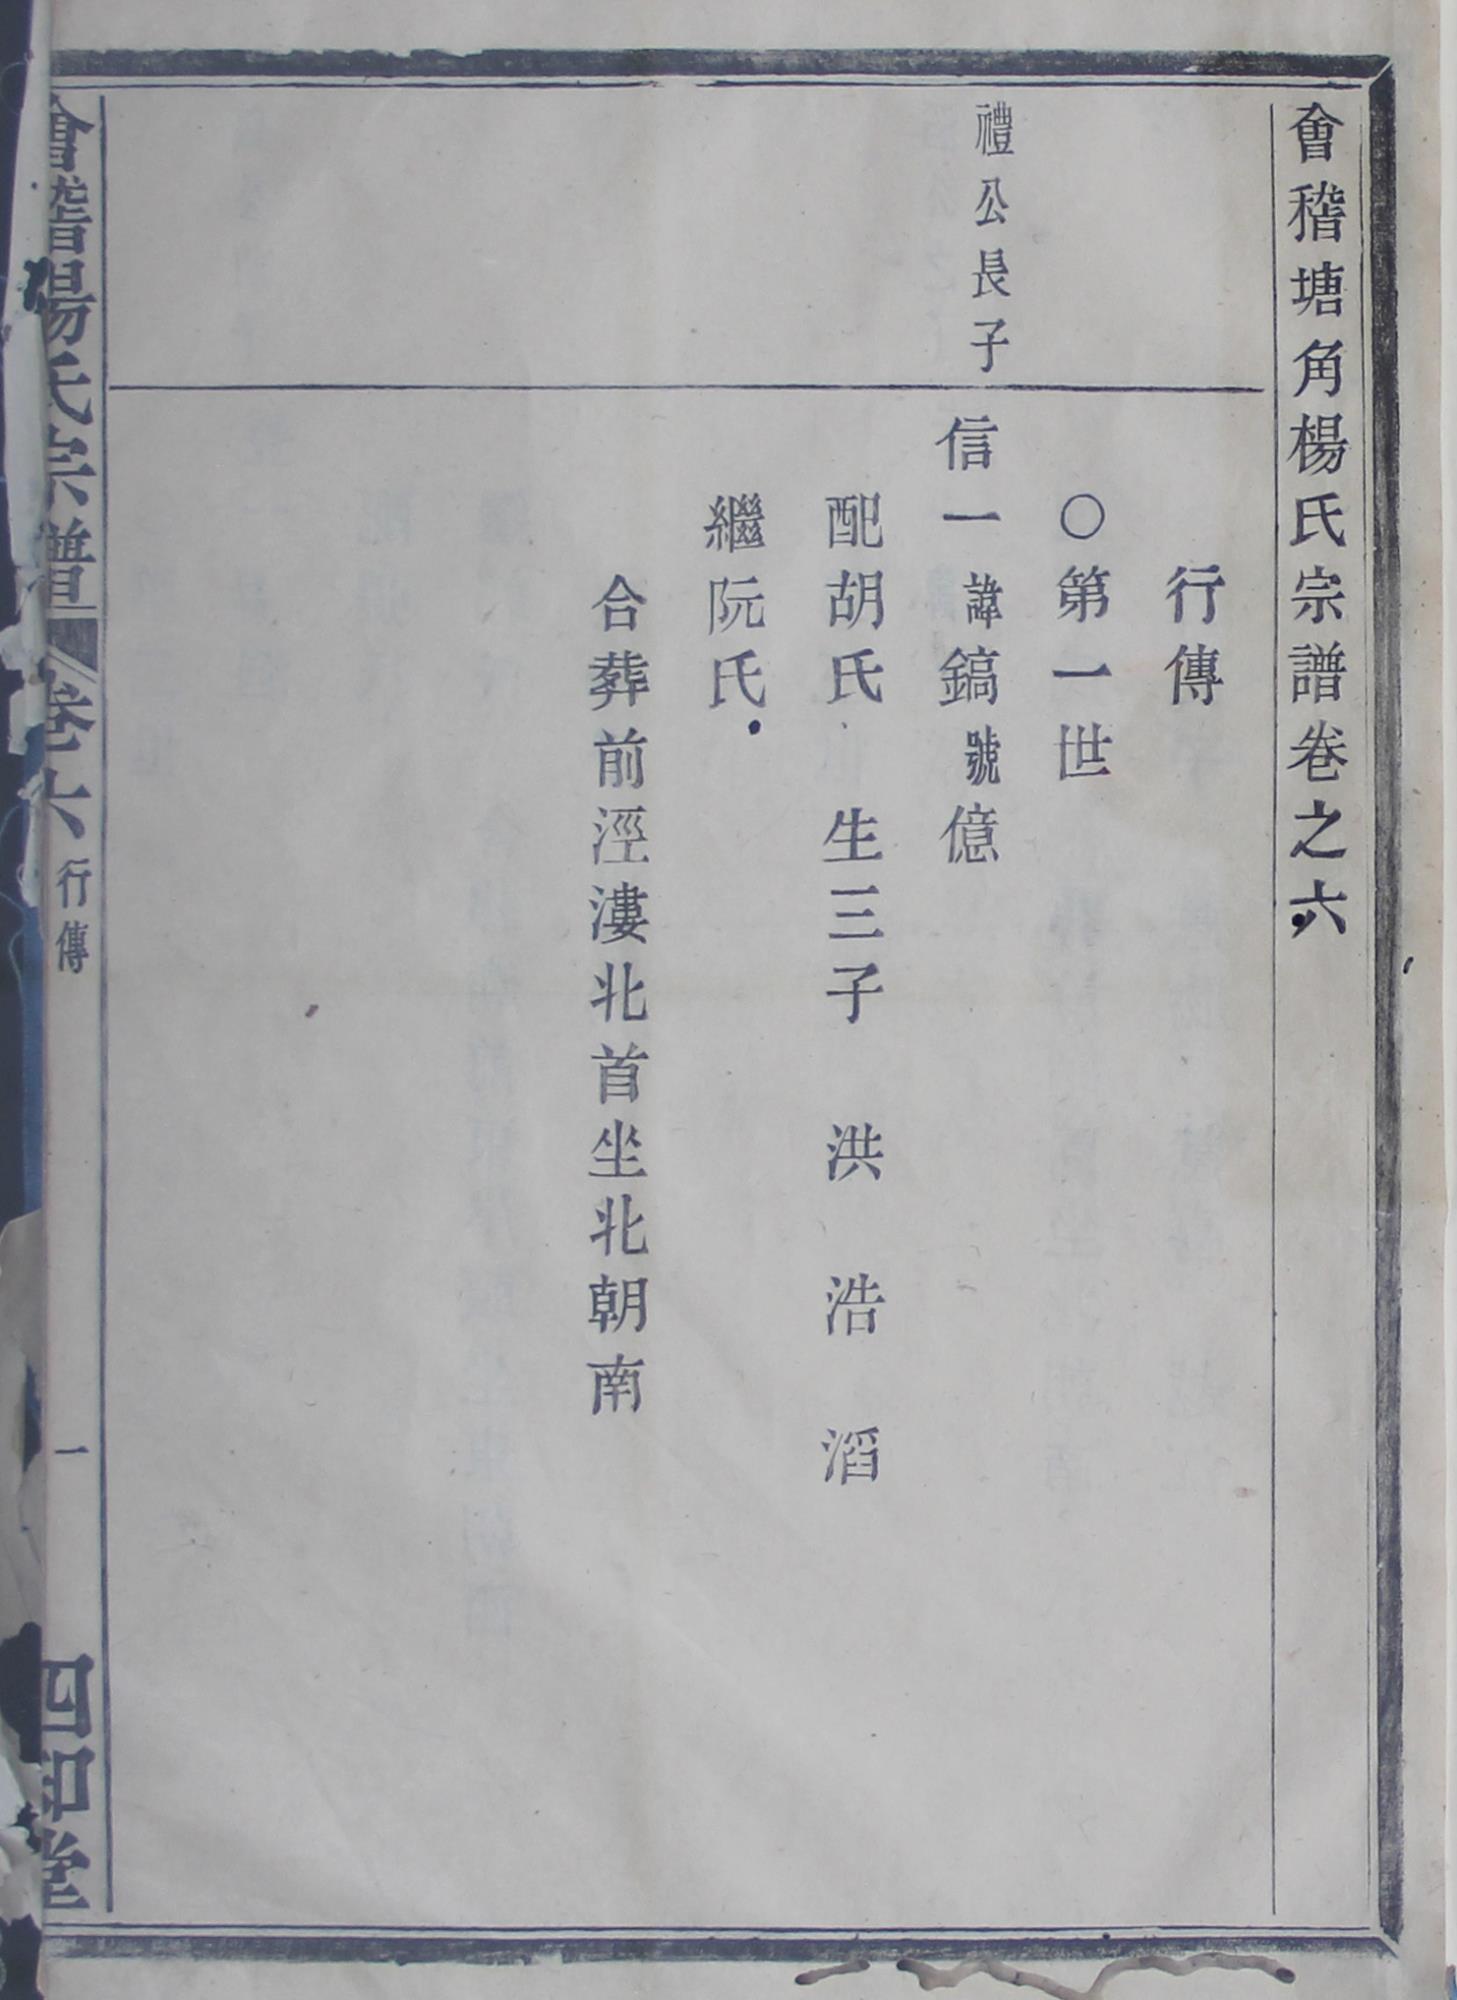 會稽塘角楊氏宗譜卷之六
行傳
〇第一世
禮公長子
信一諱鎬號億
配胡氏 生三子 洪 浩 滔
繼阮氏
合葬前涇漊北首坐北朝南
會稽楊氏宗譜 卷六 行傳 一 四印堂